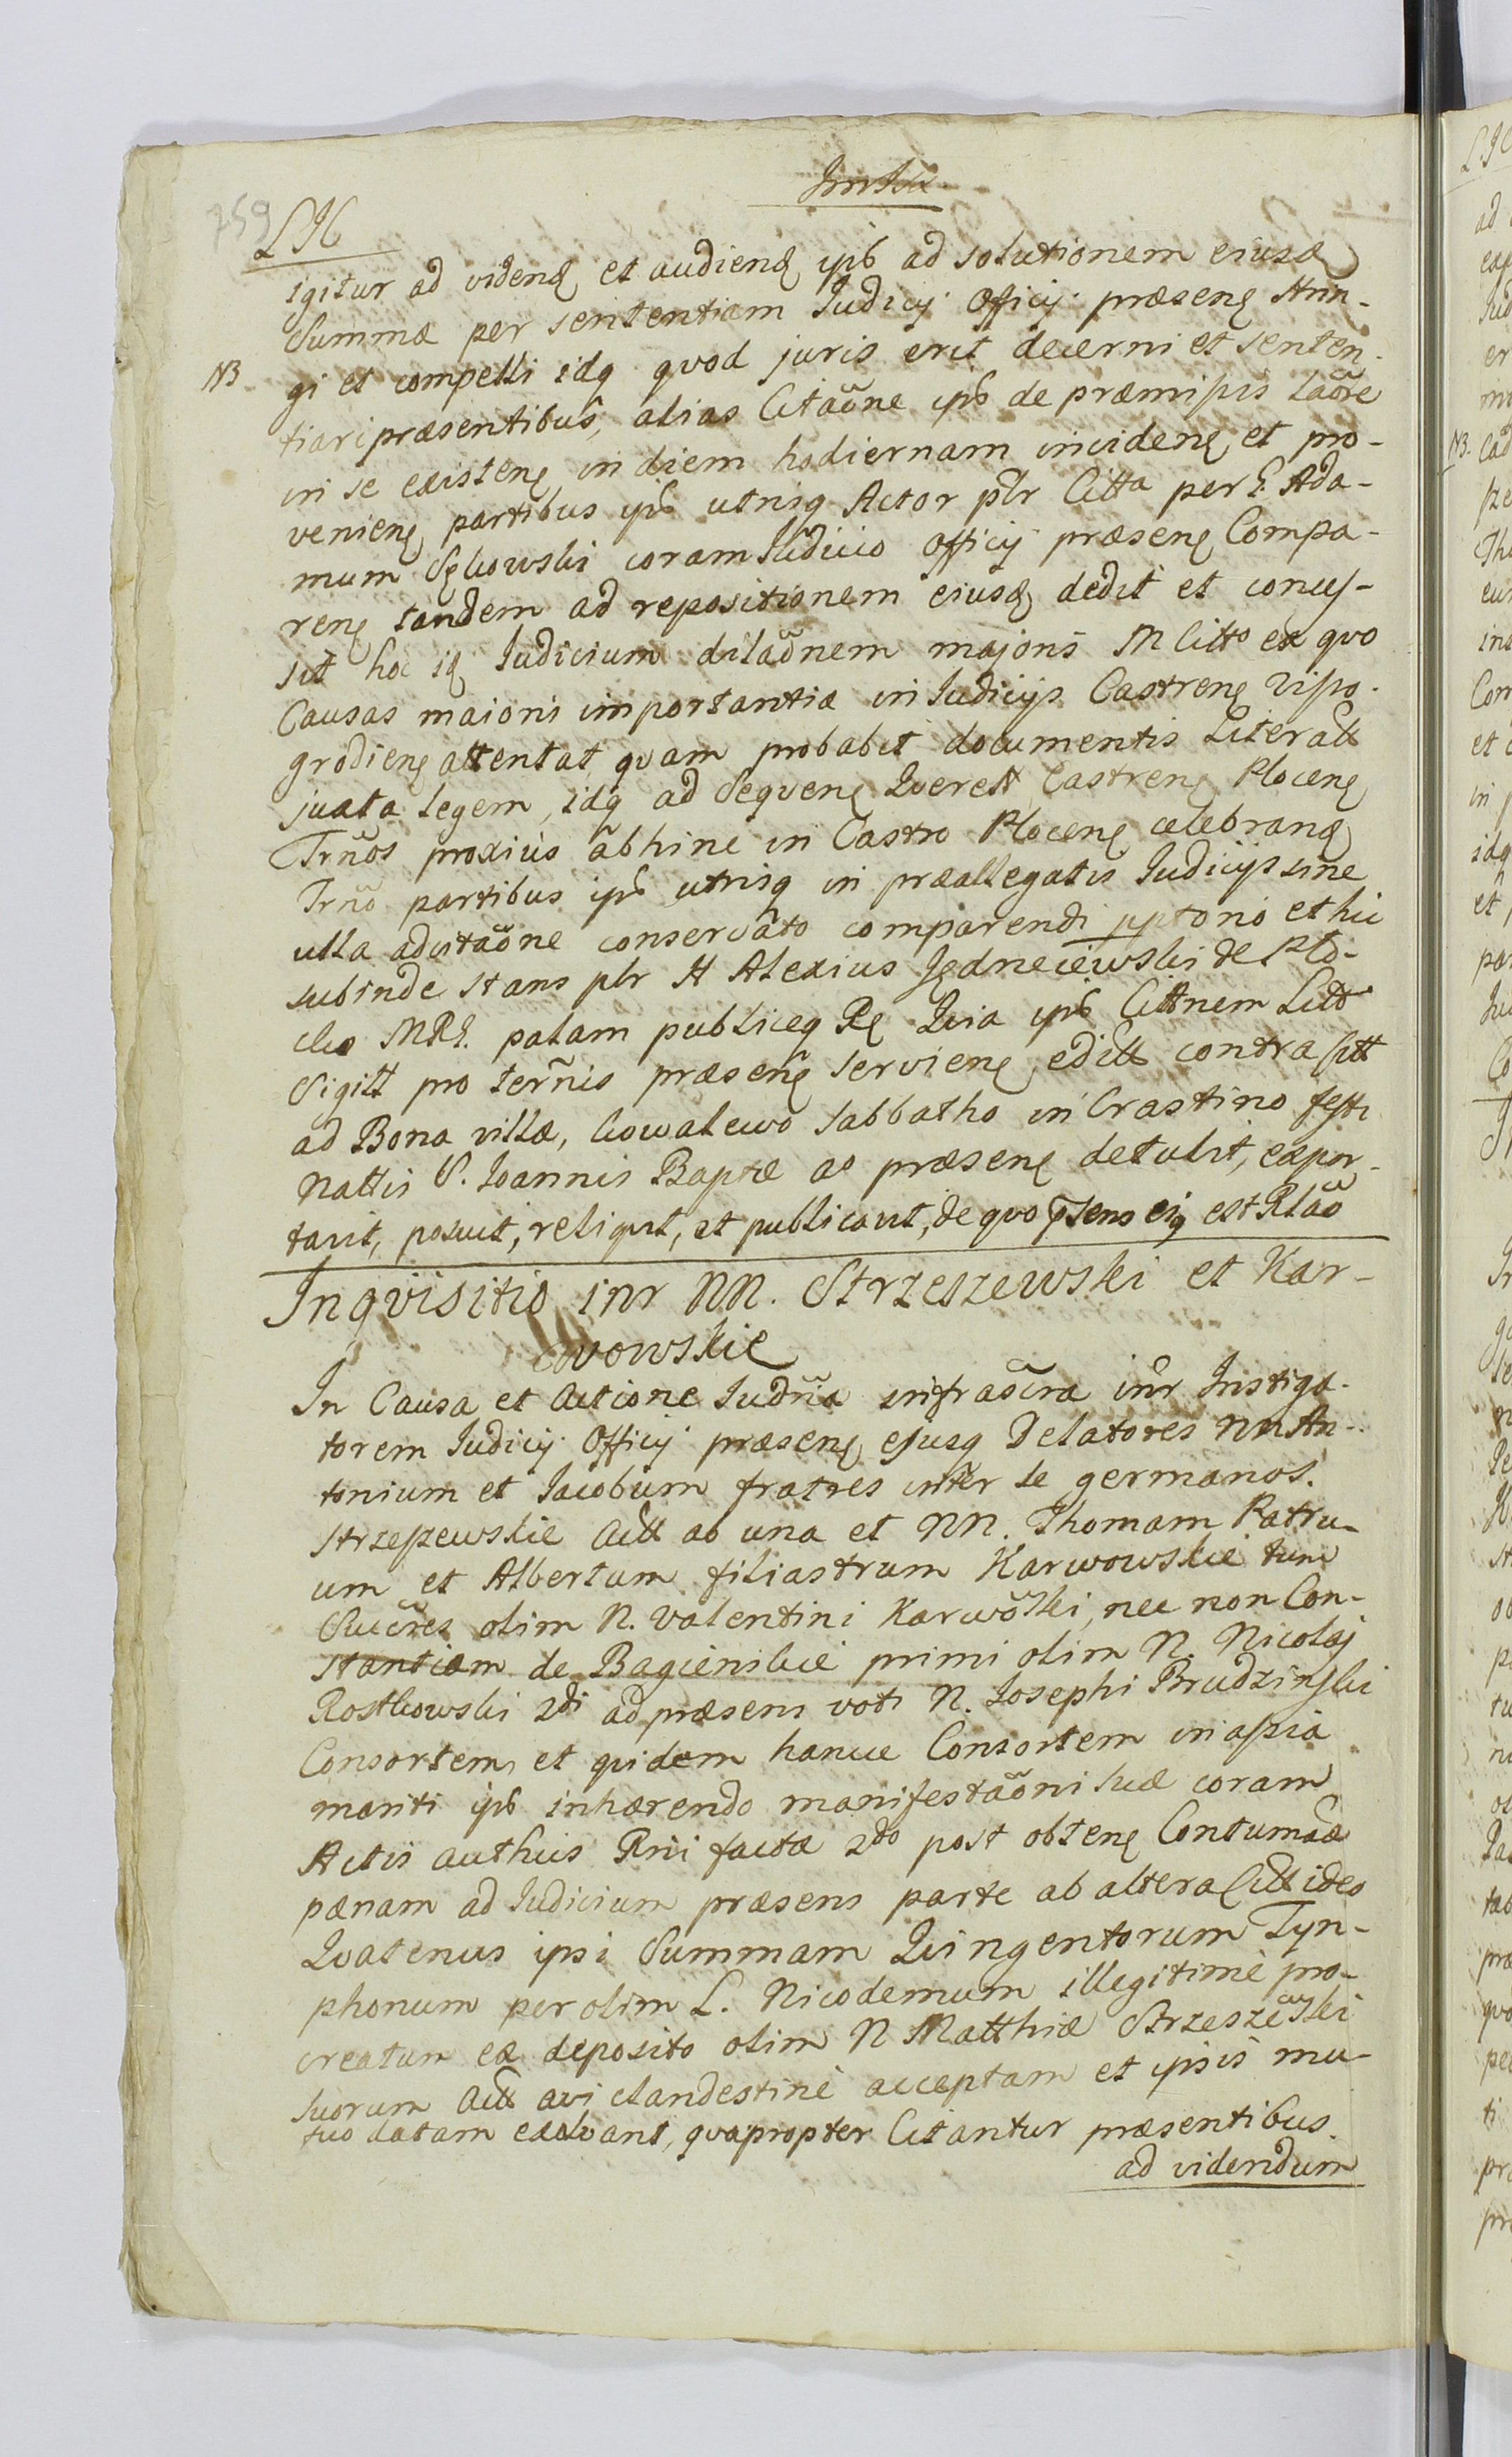 759
LH
igitur ad videnḍ et audienḍ ipś ad solutionem eiusḍ
Summæ per sententiam Judicij Officij præsenę Strin-
NB
gi et compelli idq̨ qvod juris erit decerni et senten-
tiari præsentibus, alias Citaõne ipś de præmissis latõre
in se existenę in diem hodiernam incidenę et pro-
venienę partibus ipś utrisq̨ Actor płr Citta per G. Ada-
mum Sękowski coram Judicio Officij præsenę Compa-
renę tandem ad repositionem eiusḍ dedit et conces-
sit hoc iḍ Judicium dilaõnem majoris M Citto ex qvo
Causas maioris importantiæ in Judicijs Castrenę Visso-
grodienę attentat, qvam probabit documentis Literałł
juxta legem, idq̨ ad Seqvenę Querełł Castrenę Plocenę
Trños proxius abhinc in Castro Plocenę celebranḍ
Trño partibus ipś utrisq̨ in præallegatis Judicijs sine
ulla adcitaõne conservato comparendi pptorio et hic
subinde stans płr H Alexius Jędnecewski de Plo-
cko MRG. palam publiceq̨ Rę Quia ipś Cittnem Litt
Sigitt pro termis præsenę servienę edittt contra Citt
ad Bona villæ, Kowalewo Sabbatho in Crastino festi
Nattis S. Joannis Baptæ aº præsenę detulit, expor-
tavit, posuit, reliqvit, et publicavit, de qvo ꝑsens eiq̨ est Rlaõ
Inqvisitio intr NN. Strzeszewski et Kar-
wowskie
In Causa et Actione Judrña infrascra intr Instiga-
torem Judicij Officij præsenę ejusq̨ Delatores NN An-
tonium et Jacobum fratres inter se germanos.
Strzeszewskie Actt ab una et NN. Thomam Patru-
um et Albertum filiastrum Karwowskie tum
Succres olim N. Valentini Karwoski, nec non Con-
stantiam de Bagieńskie primi olim N. Nicolaj
Rostkowski 2di ad præsens voti N. Josephi Brudzinski
Consortem, et qvidem hancce Consortem in assia
mariti ipś inhærendo manifestaõni suæ coram
Actis authcis Rñi factæ 2do post obtenę Contumaæ
pænam ad Judicium præsens parte ab altera Citt ideo
Qvatenus ipsi Summam Qvingentorum Tyn-
phonum per olim L. Nicodemum illegitimè pro-
creatum ex deposito olim N Matthiæ Strzeszewski
suorum Actt avi clandestinè acceptam et ipsis mu-
tuo datam exolvant, qvapropter Citantur præsentibus.
ad videndum